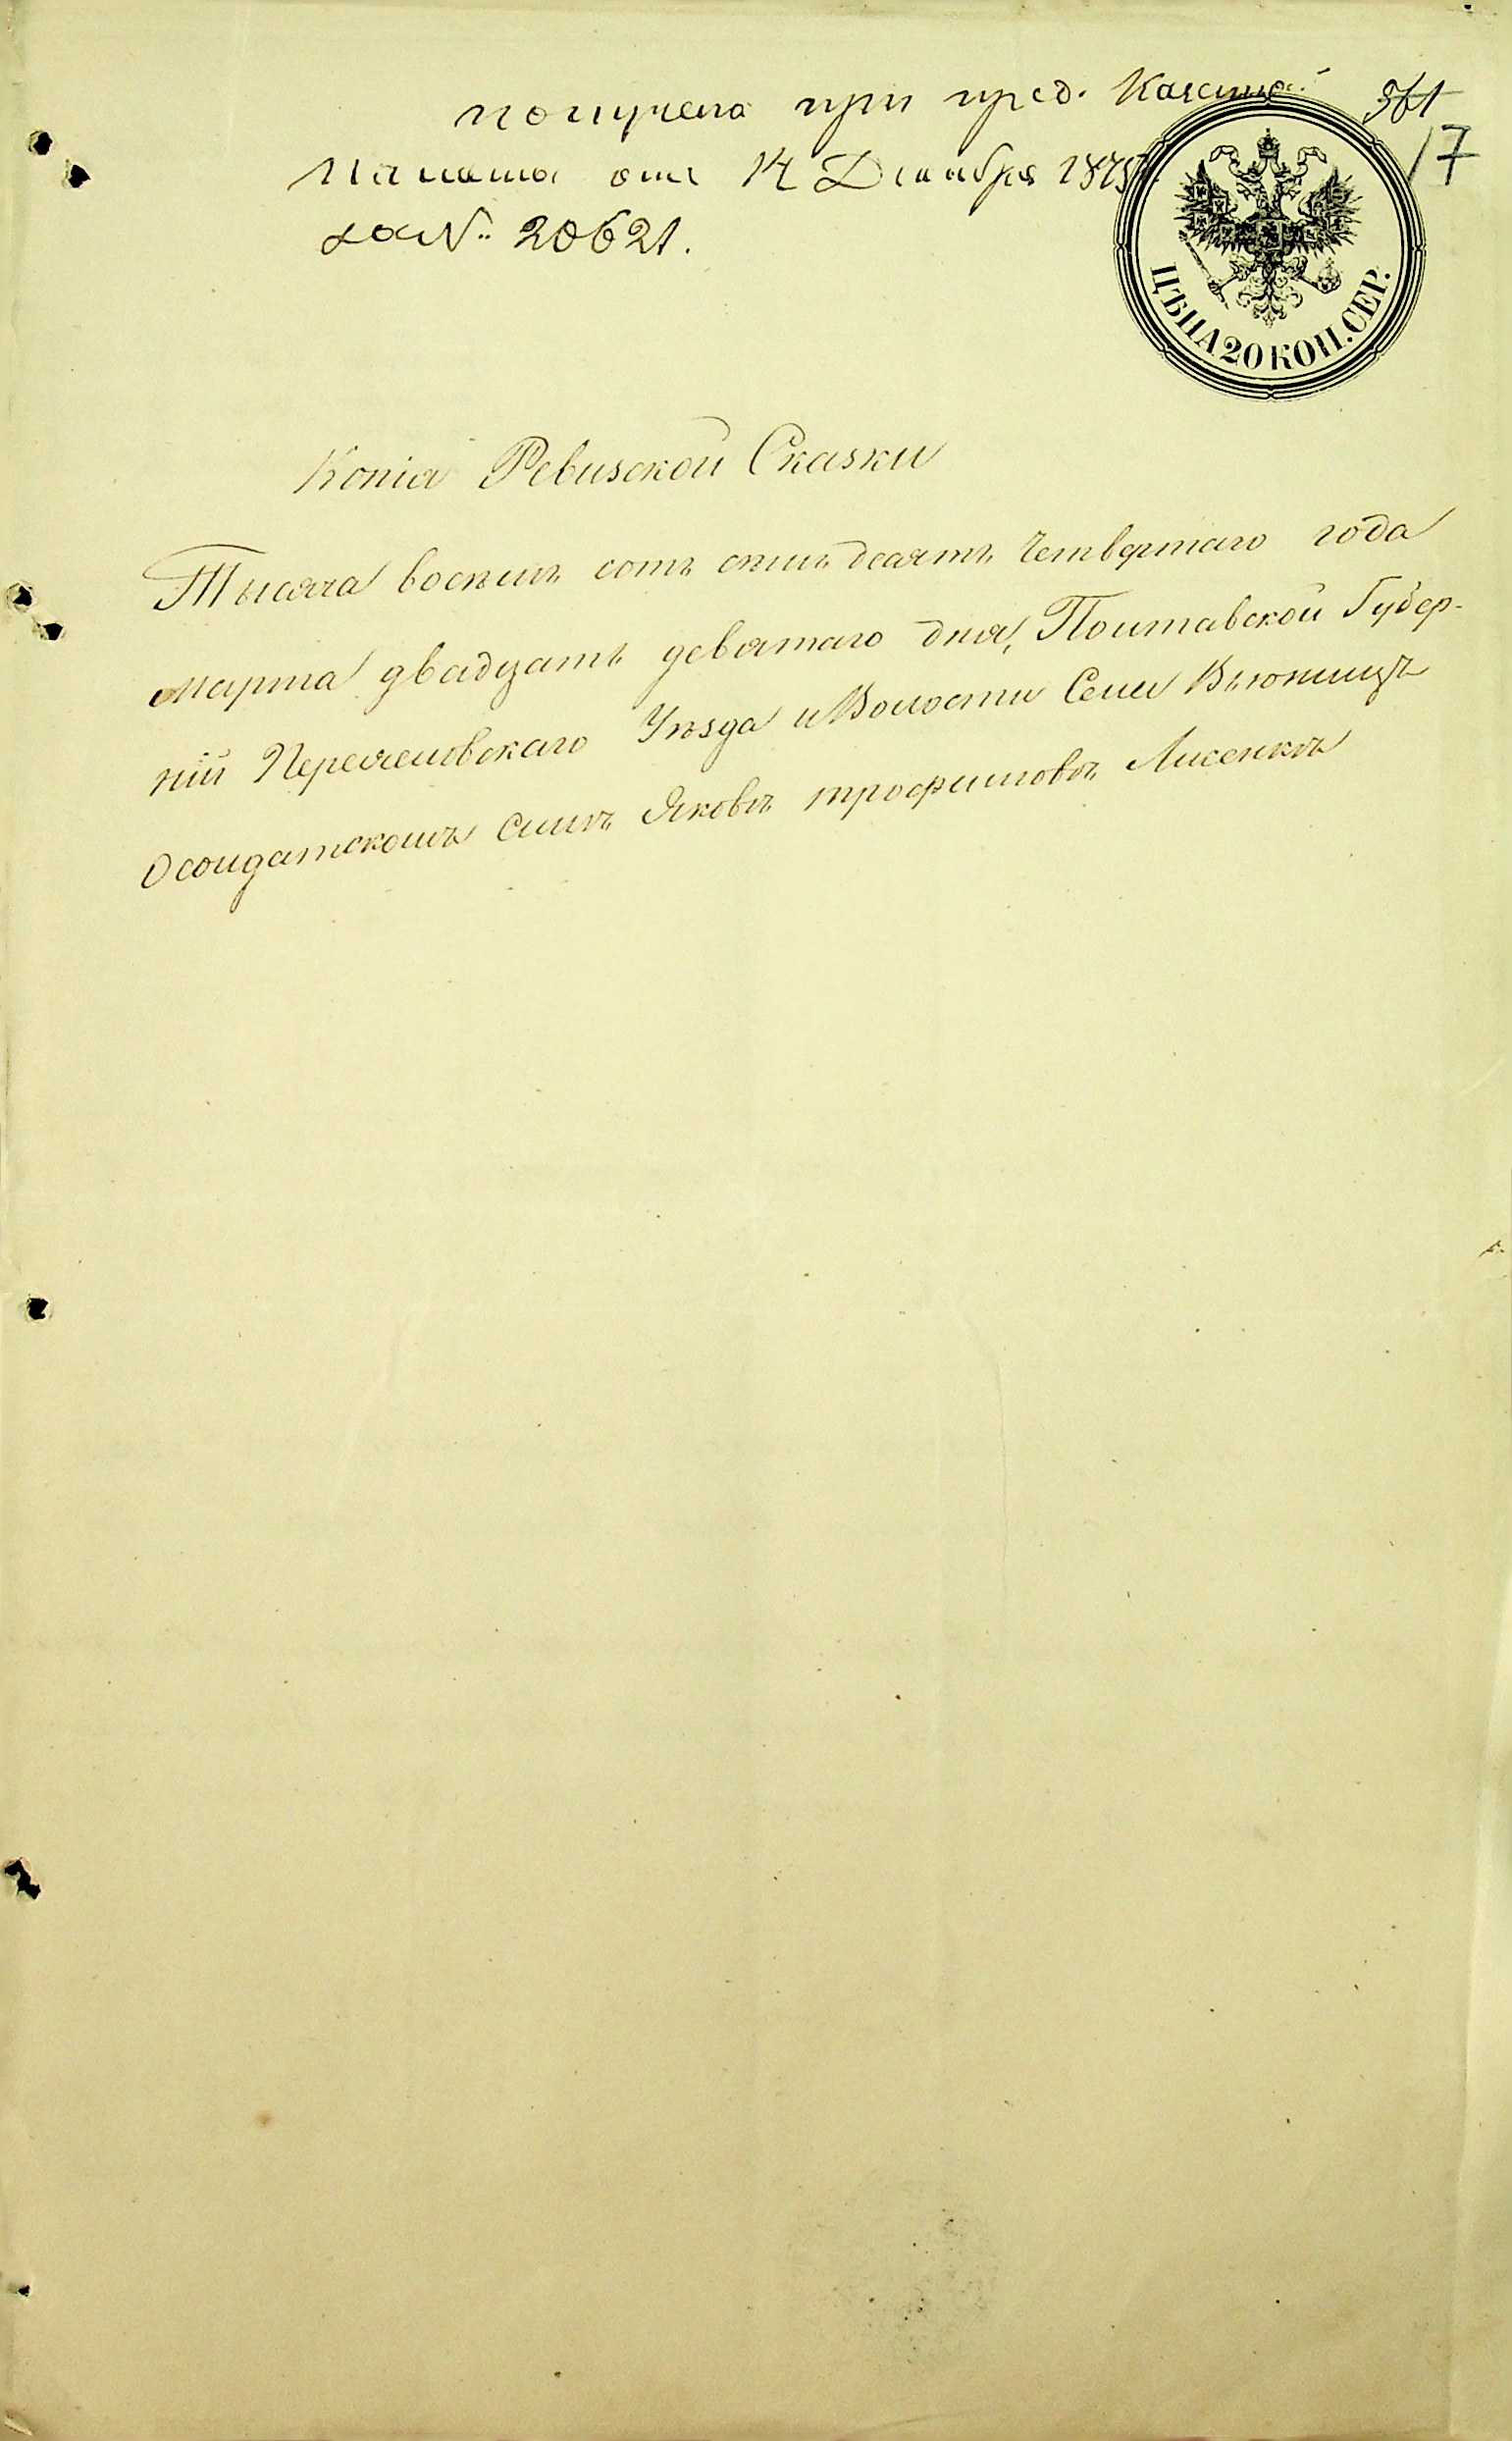 получена при пред. Казенной
Палаты отъ 14 Декабря 1879
за № 20621.
361
17
ЦѢНА 20 КОП. СЕР.
Копія Ревизской Сказки
Тысяча восемь сотъ семь десятъ четвертаго года
Марта двадцать девятаго дня, Полтавской Губер-
ніи Переяславскаго Уѣзда и Волости Села Вьюнищъ
О солдатскомъ сынѣ Яковѣ трофимовѣ Лисенкѣ